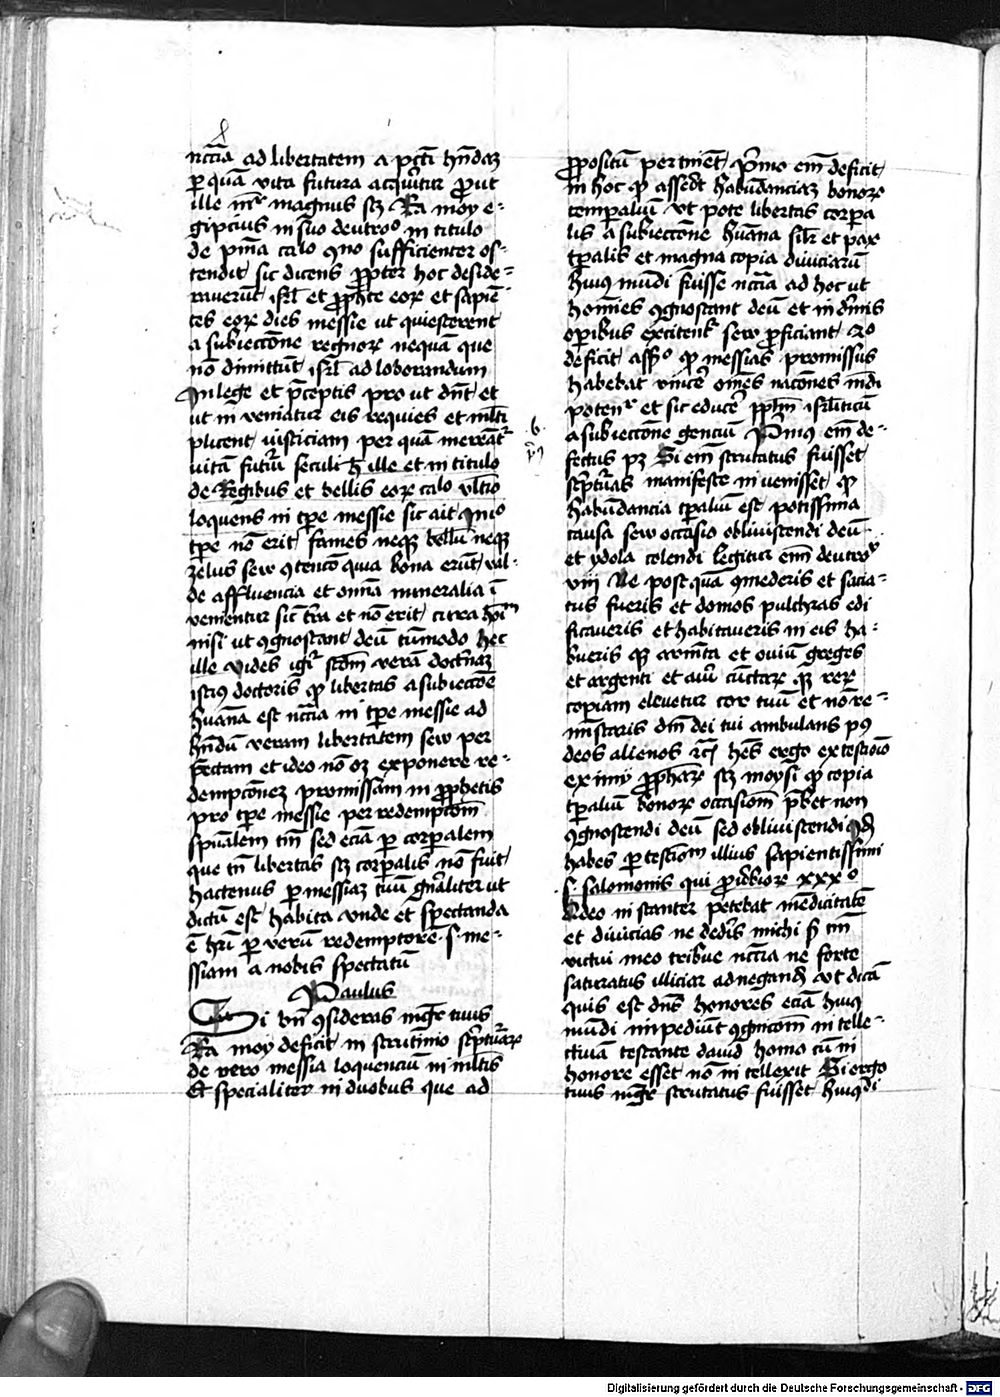 nccͣia ad libertatem a pctī hn̄daꝫ
ꝑ quā vita futura acquiritur ꝓut
ille mr̄ magnus scꝫ Ra moy e-
gipcius in suo deutroº in titulo
de pm̄a calo ꝯno sufficienter os-
tendit sic dicens ꝓpter hoc deside-
rauerūt isrl̄ et ꝓphete eoꝝ et sapiē-
tes eoꝝ dies messie ut quiescerent
a subiectione regnoꝝ nequā que
nō dimittūt isrl̄ ad loborandum
In lege et p̄ceptis pro ut dn̄t et
ut in veniatur eis requies et ml̄ti
plicent iusticiam per quā mereāt᷑
uitā futur̄ seculi h̄ ille et in titulo
de Regibus et bellis eoꝝ calo vltiº
loquens in tpe messie sic ait In iº
tpe nō erit fames neqꝫ bellū neqꝫ
zelus sew ꝯtencō quia bona erūt val-
de affluencia et omīa mineralia ī
venientur sic tr̄a et nō erit cura hoī
nisi ut ꝯgnoscant deū tm̄modo hec
ille vides igr̄ scdm verā doctͥnaꝫ
istiꝰ doctoris ꝙ libertas a subiectōe
huāna est nccͣia in tpe messie ad
hn̄dū veram libertatem sew per
fectam et ideo nō oꝫ exponere re-
dempcōneꝫ promissam in ꝓphetis
pro tpe messie per redempcōm
spūalem tm̄ sed eciā ꝑ corpalem
que tn̄ libertas scꝫ corpalis nō fuit
hactenus ꝑ messiaꝫ tuū gn̄aliter ut
dictū est habita unde et spectanda
ē hui ꝑ verū redemptorē .s. me-
ssiam a nobis spectatū
Paulus
Si bn̄ ꝯsideras mgr̄ tuus
Ra moy deficit in scrutinio sc̄ptuꝝ
de vero messia loquenciū in ml̄tis
Et specialiter in duobus que ad
ꝓpositū pertinēt Pͥmo em̄ deficit
in hoc ꝙ asserit habūdanciaꝫ bonoꝝ
temporaliū ut pote libertas corpa
lis a subiectōne huāna silr̄ et pax
tꝑalis et magna copia diuiciarū
huiꝰ mūdi fuisse nccͣia ad hoc ut
homīes ꝯgnoscant deū et in diuinis
oꝑibus excitent᷑ sew ꝓficiant 2º
deficit asserº ꝙ messias promissus
habebat vincere om̄es nacōnes mūdi
potent᷑ et sic educere ppl̄m isrl̄iticū
a subiectōne genciū Pͥmus em̄ de-
fectus pꝫ Si em̄ scrutatus fuisset
sc̄pturas manifeste in venisset ꝙ
habūdancia tꝑaliū est potissima
causa sew occasio obliuiscendi deū
et ydola colendi legitur em̄ deutroº
viij Ne post quā ꝯmederis et sacia-
tus fueris et domos pulchras edi
ficaueris et habitaueris in eis ha-
bueris qꝫ armēta et ouiū greges
et argenti et auri cūctaꝝ qꝫ reꝝ
copiam eleuetur cor tuū et nō re-
miniscaris dn̄i dei tui ambulans pꝰ
deos alienos ꝛc̄ hēs ergo ex testiōio
ex imii ꝓphete scꝫ moysi ꝙ copia
tꝑaliū bonoꝝ occasiōm p̄bet non
ꝯgnoscendi deū sed obliuiscendi Itē
habes ꝑ testiōm illius sapientissimi
s. salomonis qui ꝓuͥbioꝝ xxxº
Adeo in stanter petebat mēdicitatē
et diuicias ne dederis michi s̄ tm̄
victui meo tribue nccͣia ne forte
saturatus illiciar ad negandū ut dicā
quis est dn̄s honores eciā huiꝰ
mūdi impediūt ꝯgnicōm in telle-
ctiuā testante dauid homo cū in
honore esset nō in tellexit Si ergo
tuus mgr̄ scrutatus fuisset huiꝰdi
Digitalisierung gefördert durch die Deutsche Forschungsgemeinschaft - DFG